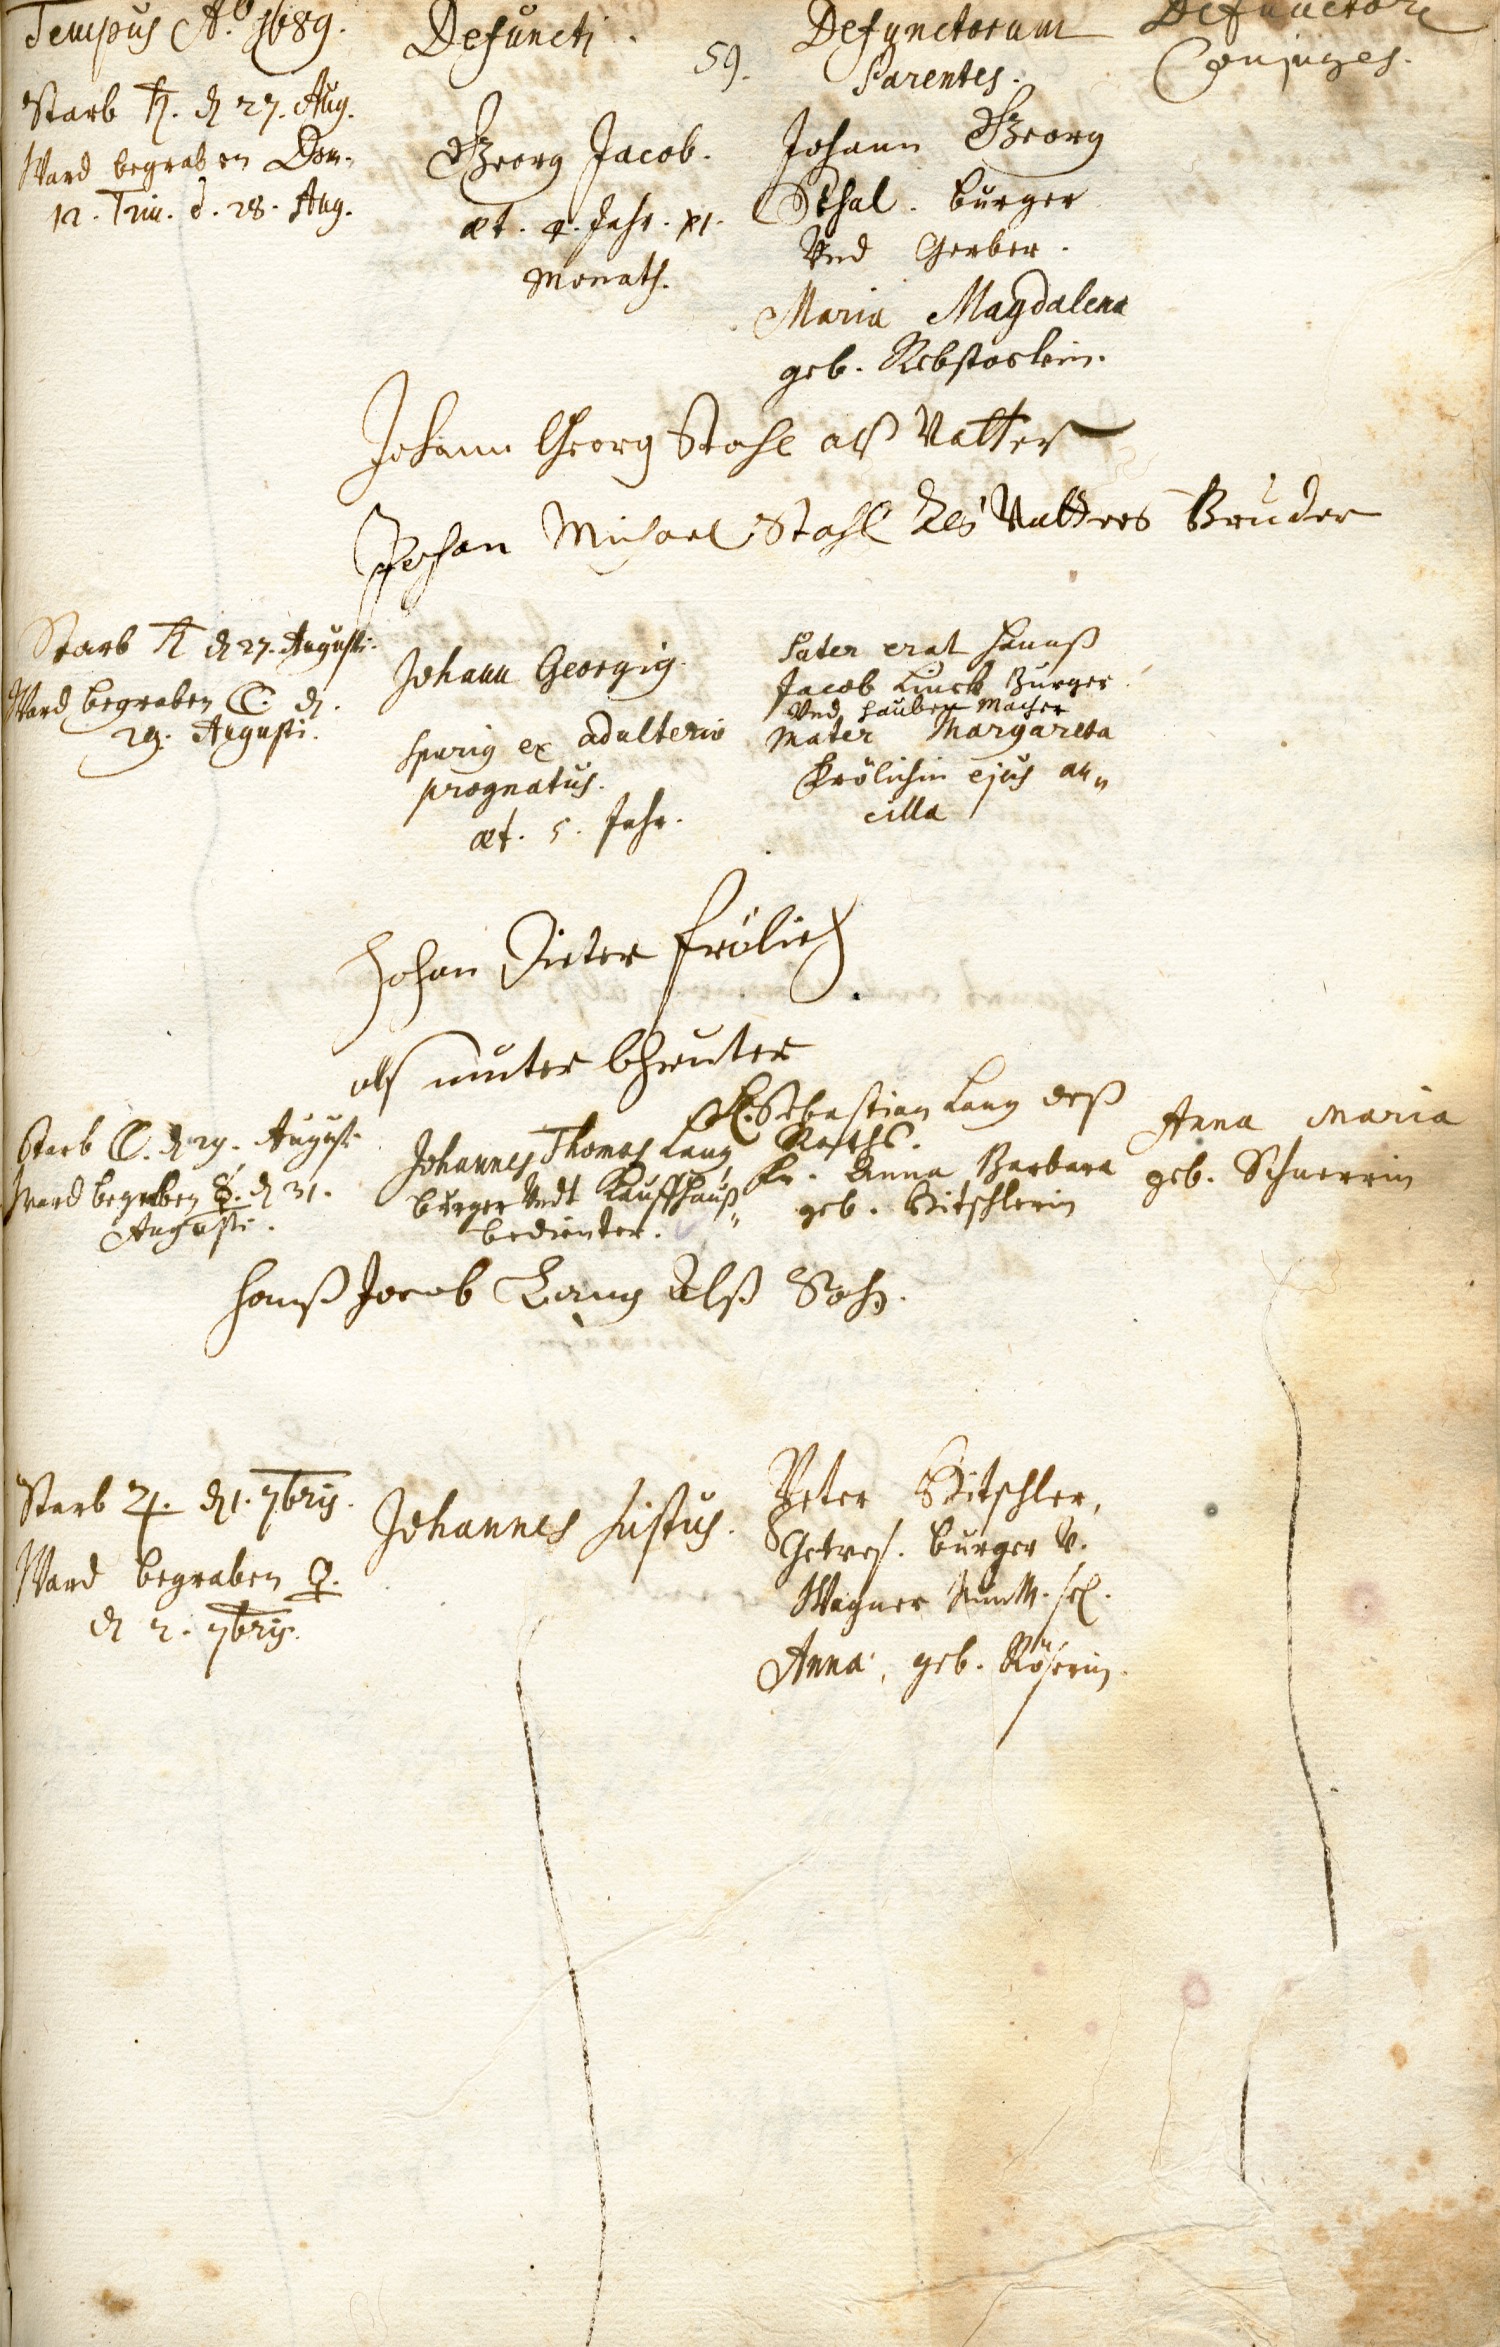 Tempus Aº. 1689.
Defuncti.
59.
Defunctorum
Parentes.
Defunctorũ
Conjuges.
Starb ♄. d 27. Aug.
Ward begraben Dom.
12. Trin. d. 28. Aug.
Georg Jacob.
æt. 4. Jahr. XI.
Monath.
Johann Georg
Sthal. burger
Vnd Gerber.
Maria Magdalena
geb. Rebstockin.
Johann Georg Stahl als Vatter
Johan Michael Stahl des Vatters Bruder
Starb ♄ d 27. Augusti.
Ward begraben ☾. d.
29. Augusti.
Johann Georgig.
spurig ex adulterio
prognatus.
æt. 5. Jahr.
Pater erat Hannß
Jacob Linck Burger
Vnd Haubenmacher
Mater Margareta
Frölichin ejus an„
cilla
Johan Dieter Frölich
als muter bruter
Starb ☾. d 29. Augusti
Ward begraben ☿. d 31.
Augusti.
Johannes Thomas Lang
burger Vndt Kauffhauß„
bedienter.
H. Sebastian Lang deß
Raths.
Fr. Anna Barbara
geb. Bitschlerin
Anna Maria
geb. Schnerrin
Hanß Jacob Lang Alß Sohn.
Starb ♃. d 1. 7bris.
Ward begraben ♀.
d 2. 7bris.
Johannes Justus.
Peter Bitschler,
burger V.
Wagner sel.
Anna, geb. Röserin.